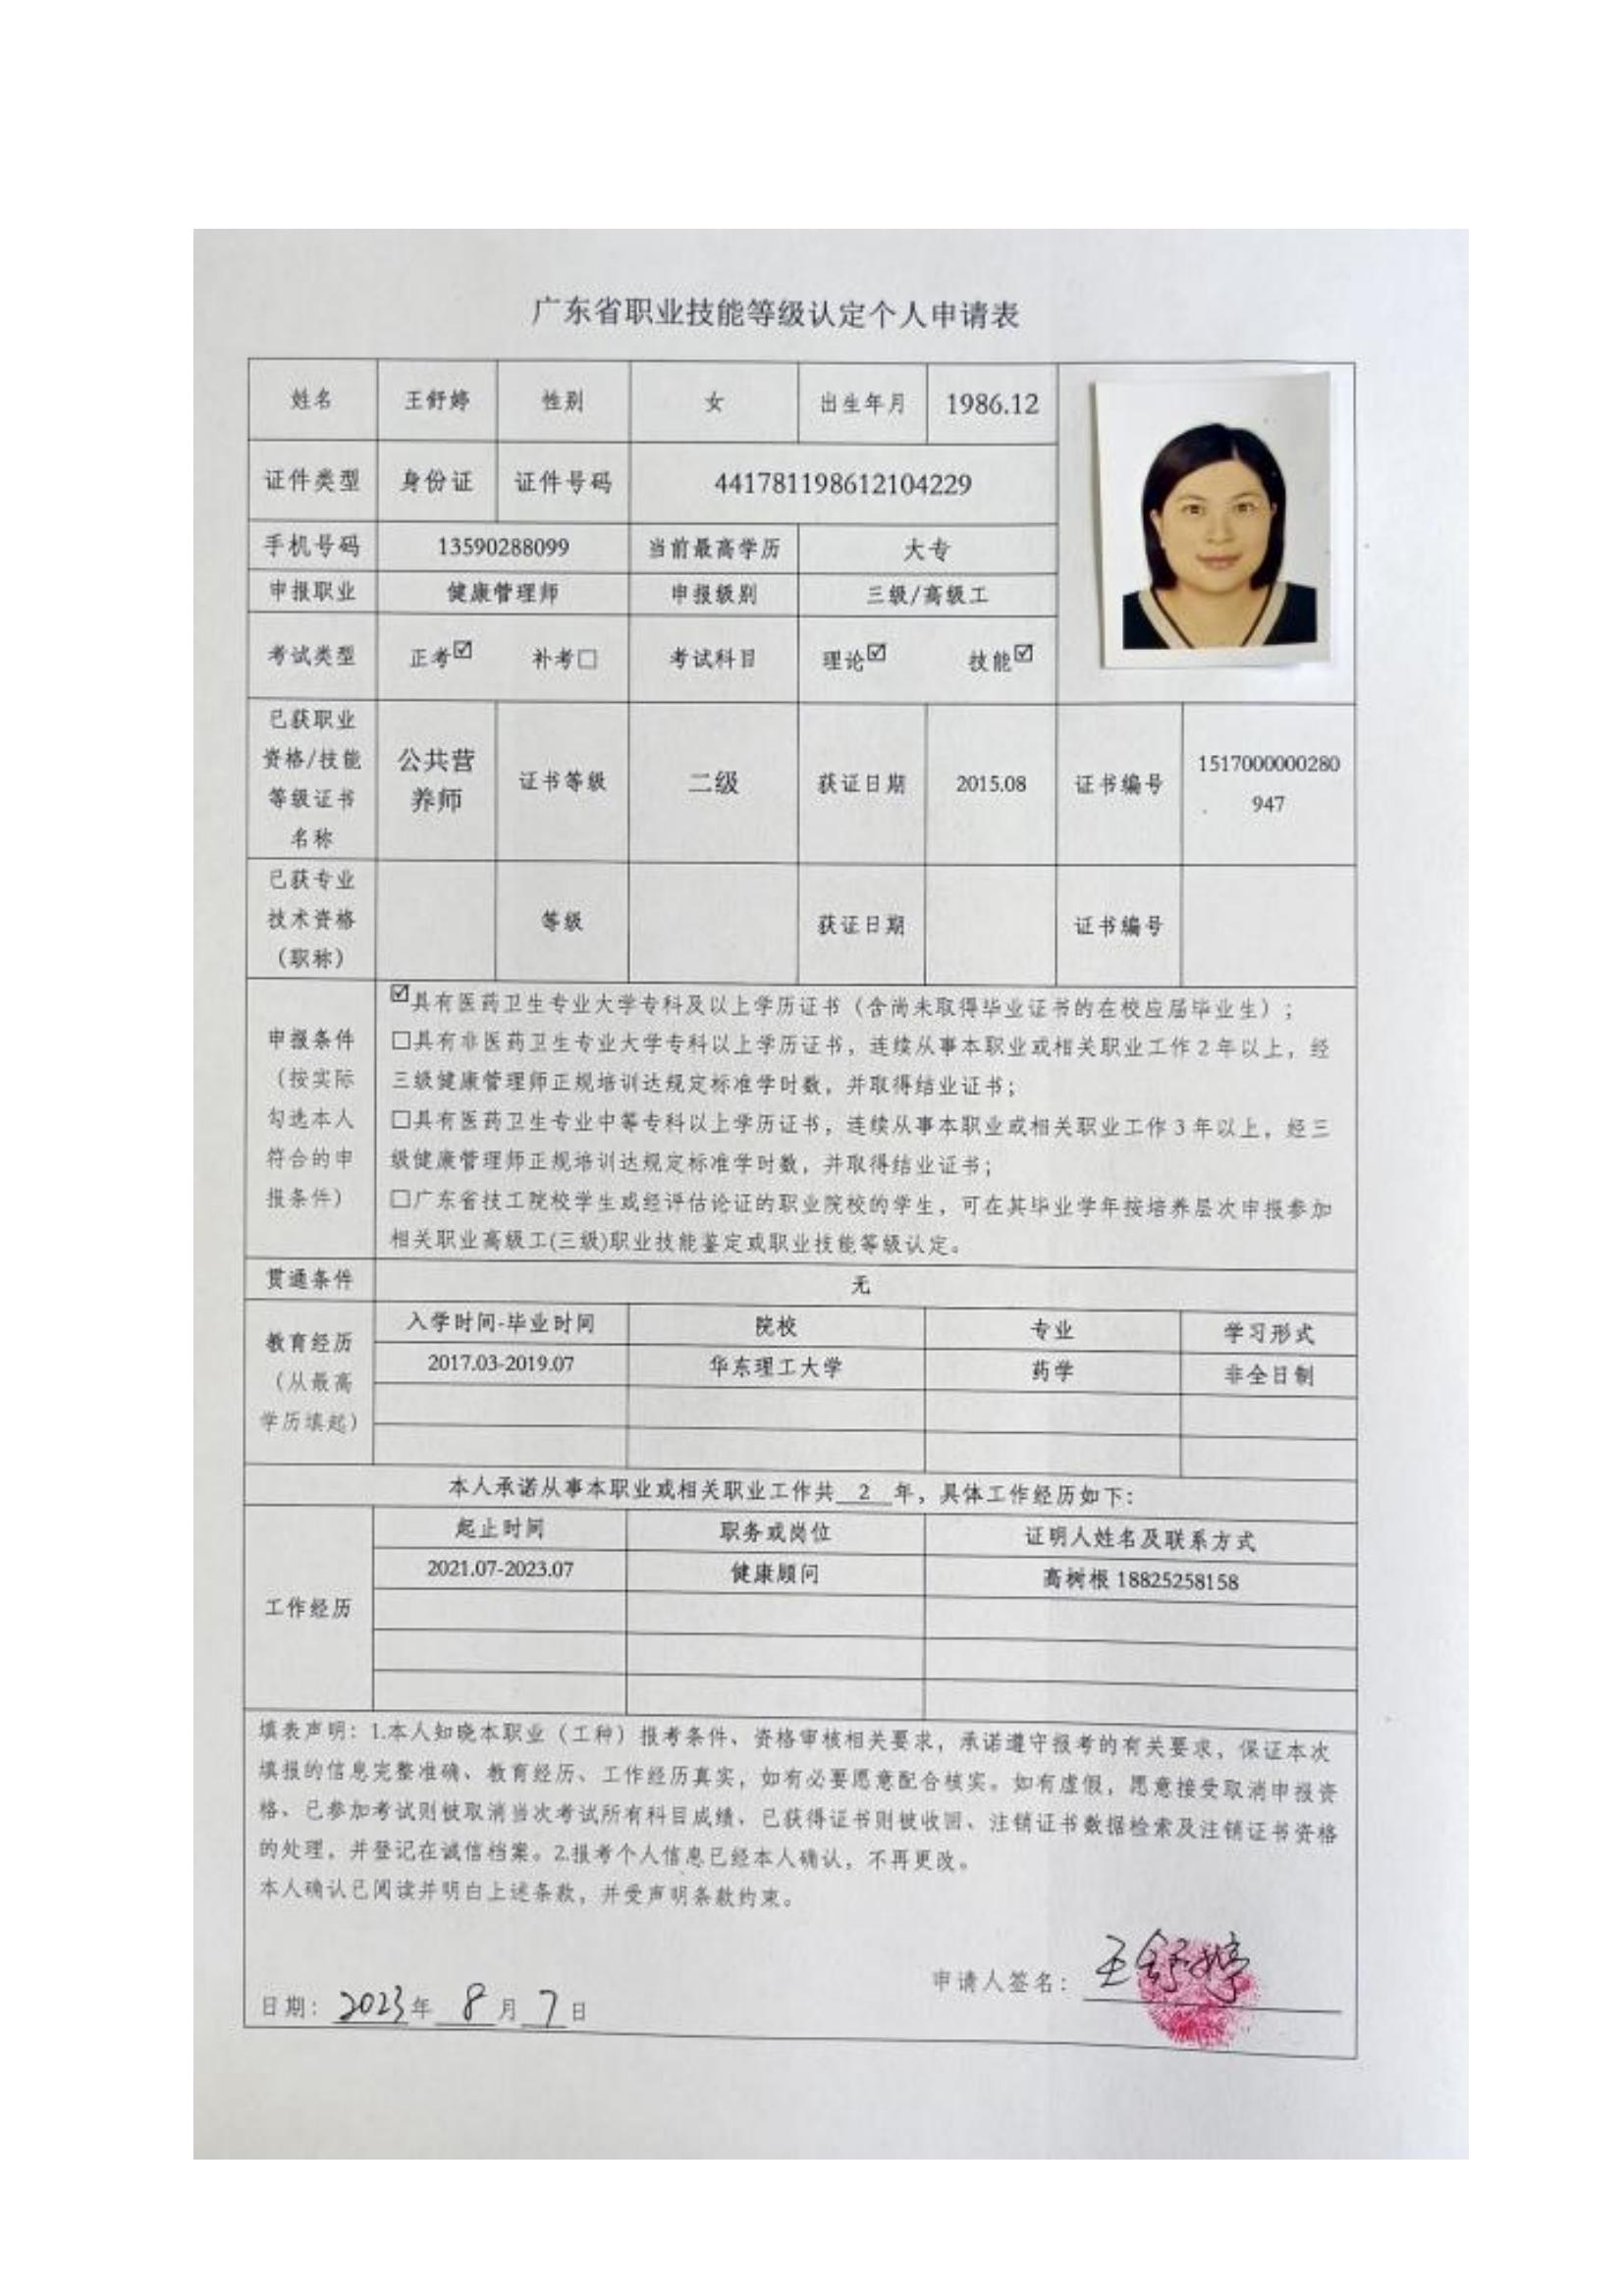 广东省职业技能等级认定个人申请表
姓名 王舒婷 性别 女 出生年月 1986.12
证件类型 身份证 证件号码 441781198612104229
手机号码 13590288099 当前最高学历 大专
申报职业 健康管理师 申报级别 三级/高级工
考试类型 正考☑ 补考□ 考试科目 理论☑ 技能☑
已获职业
资格/技能
等级证书
名称
公共营
养师
证书等级 二级 获证日期 2015.08 证书编号
1517000000280
947
已获专业
技术资格
（职称）
等级 获证日期 证书编号
申报条件
（按实际
勾选本人
符合的申
报条件）
☑具有医药卫生专业大学专科及以上学历证书（含尚未取得毕业证书的在校应届毕业生）；
□具有非医药卫生专业大学专科以上学历证书，连续从事本职业或相关职业工作2年以上，经
三级健康管理师正规培训达规定标准学时数，并取得结业证书；
□具有医药卫生专业中等专科以上学历证书，连续从事本职业或相关职业工作3年以上，经三
级健康管理师正规培训达规定标准学时数，并取得结业证书；
□广东省技工院校学生或经评估论证的职业院校的学生，可在其毕业学年按培养层次申报参加
相关职业高级工(三级)职业技能鉴定或职业技能等级认定。
贯通条件 无
教育经历
（从最高
学历填起）
入学时间-毕业时间 院校 专业 学习形式
2017.03-2019.07 华东理工大学 药学 非全日制
本人承诺从事本职业或相关职业工作共 2 年，具体工作经历如下：
工作经历
起止时间 职务或岗位 证明人姓名及联系方式
2021.07-2023.07 健康顾问 高树根 18825258158
填表声明：1.本人知晓本职业（工种）报考条件、资格审核相关要求，承诺遵守报考的有关要求，保证本次
填报的信息完整准确、教育经历、工作经历真实，如有必要愿意配合核实。如有虚假，愿意接受取消申报资
格、已参加考试则被取消当次考试所有科目成绩、已获得证书则被收回、注销证书数据检索及注销证书资格
的处理，并登记在诚信档案。2.报考个人信息已经本人确认，不再更改。
本人确认已阅读并明白上述条款，并受声明条款约束。
申请人签名：王舒婷
日期：2023年 8月7日